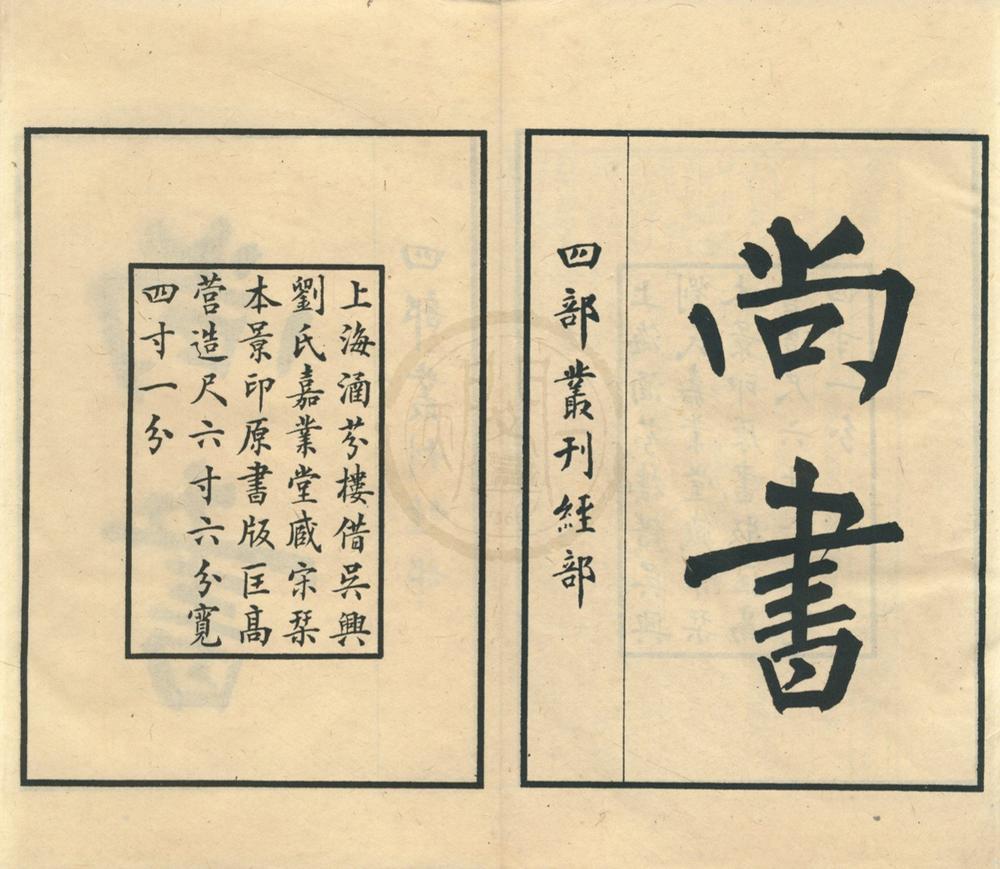 尚書
四部叢刊經部
上海涵芬樓借吳興
劉氏嘉業堂臧宋槧
本景印原書版匡高
營造尺六寸六分寬
四寸一分